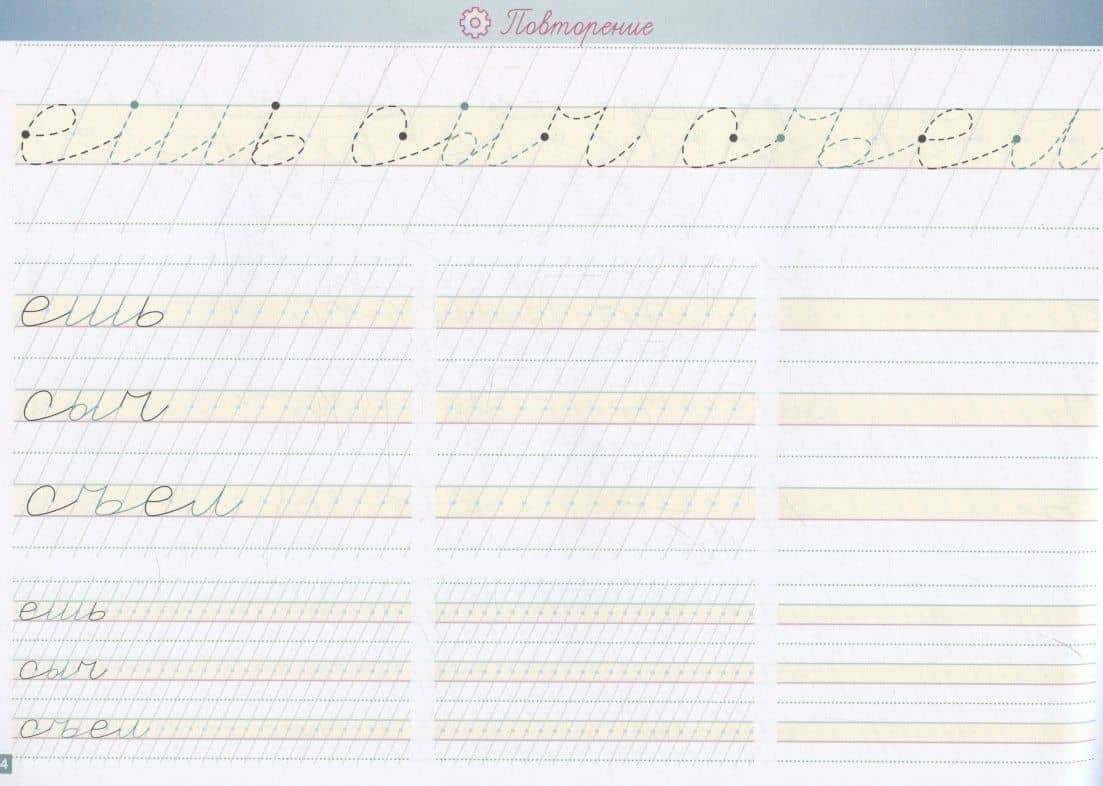 Повторение
ешь сыч съел
ешь
сыч
съел
ешь
сыч
съел
4